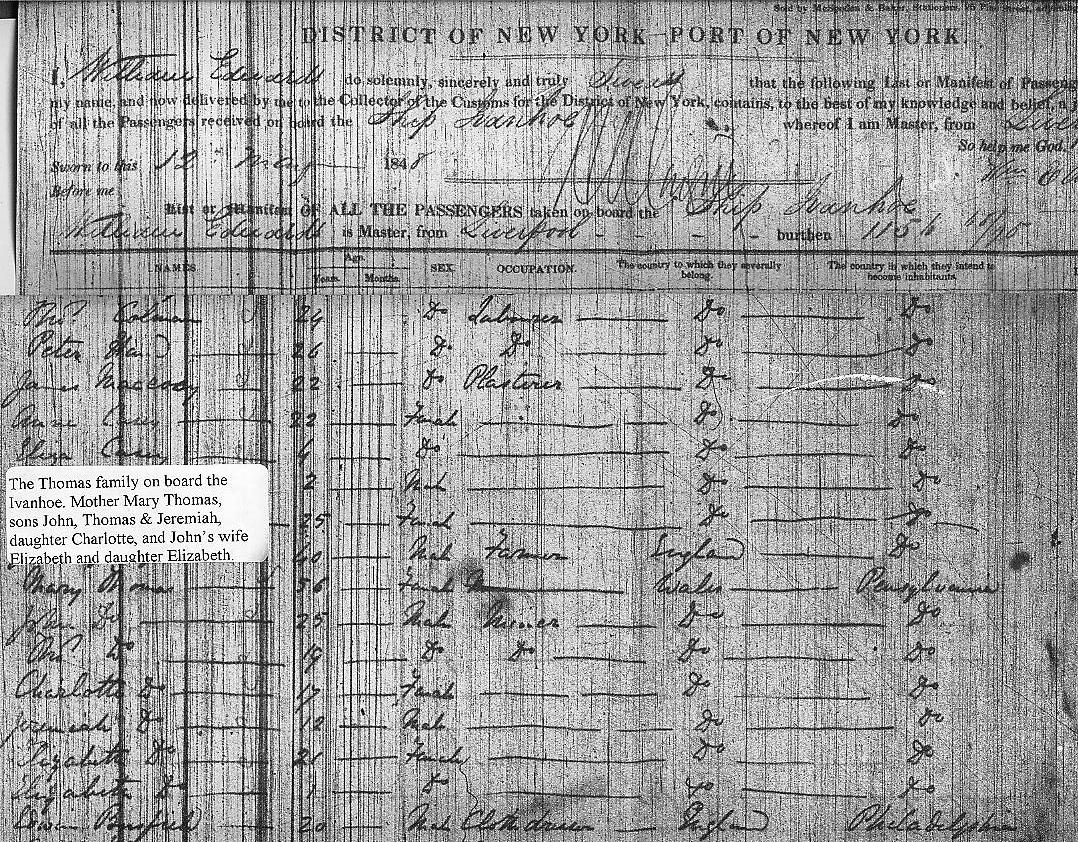 DISTRICT OF NEW YORK PORT OF NEW YORK.
I, William Edwards do solemnly, sincerely and truly Swear that the following List or Manifest of Passeng
my name, and now delivered by me to the Collector of the Customs for the District of New York, contains, to the best of my knowledge and belief, a
of all the Passengers received on board the Ship Ivanhoe whereof I am Master, from Live
So help me God.
Sworn to this 12 May 1848 Wm
Before me
List or Manifest OF ALL THE PASSENGERS taken on board the Ship Ivanhoe
William Edwards is Master, from Liverpool burthen
NAMES Age. Years. Months. SEX. OCCUPATION. The country to which they severally belong. The country in which they intend to become inhabitants.
Thos Colman 24 Do Labourer Do Do
Peter 26 Do Do Do Do
James 22 Do Plasterer Do Do
Anne Casey 22 Female Do Do
Eliza Casey Do Do Do
2 Male Do Do
25 Female Do Do
Male Farmer England Do
The Thomas family on board the
Ivanhoe. Mother Mary Thomas,
sons John, Thomas & Jeremiah,
daughter Charlotte, and John's wife
Elizabeth and daughter Elizabeth.
Mary Thomas 56 Female Wales Pensylvania
John Do 25 Male Miner Do Do
Thos Do 19 Do Do Do Do
Charlotte Do 17 Female Do Do
Jeremiah Do 12 Male Do Do
Elizabeth Do 21 Female Do Do
Elizabeth Do 1 Do Do Do
20 Male England Philadelphia